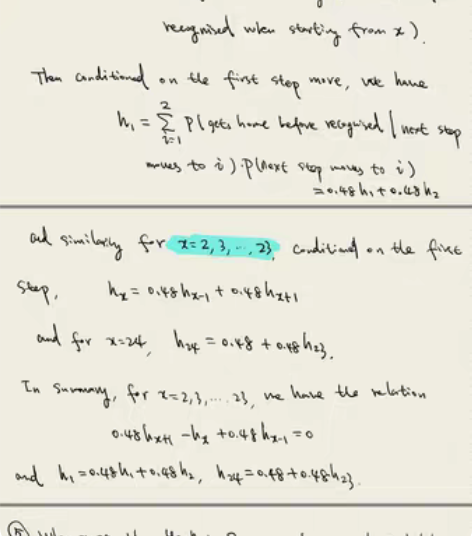 recognised when starting from x).
Then conditioned on the first step move, we have
h₁ = 2Σi=1 P(gets home before recognised | next step
moves to i)·P(next step moves to i)
= 0.48h₁ + 0.48h₂
and similarly for x=2, 3, ..., 23, conditioned on the first
step, hₓ = 0.48hₓ₋₁ + 0.48hₓ₊₁
and for x=24, h₂₄ = 0.48 + 0.48h₂₃.
In summary, for x=2,3,....23, we have the relation
0.48hₓ₊₁ - hₓ + 0.48hₓ₋₁ = 0
and h₁ = 0.48h₁ + 0.48h₂, h₂₄ = 0.48 + 0.48h₂₃.